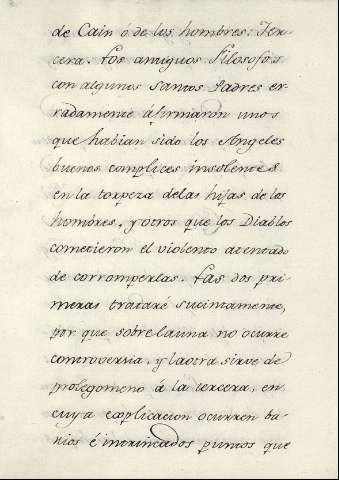 de Cain ó de los hombres: Ter-
cera. Los antiguos Filosofos
con algunos Santos Padres er-
radamente áfirmaron unos
que habian sido los Angeles
buenos complices insolentes
en la torpeza delas hijas de los
hombres, y otros que los Diablos
cometieron el violento atentado
de corromperlas. Las dos pri-
meras trataré sucintamente,
por que sobre launa no ocurre
controversia, y laotra sirve de
prolegomeno á la tercera, en
cuya explicacion ocurren ba-
rios é intrincados puntos que